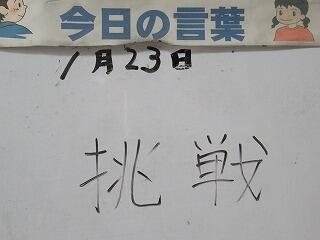 今日の言葉
1月23日
挑戦